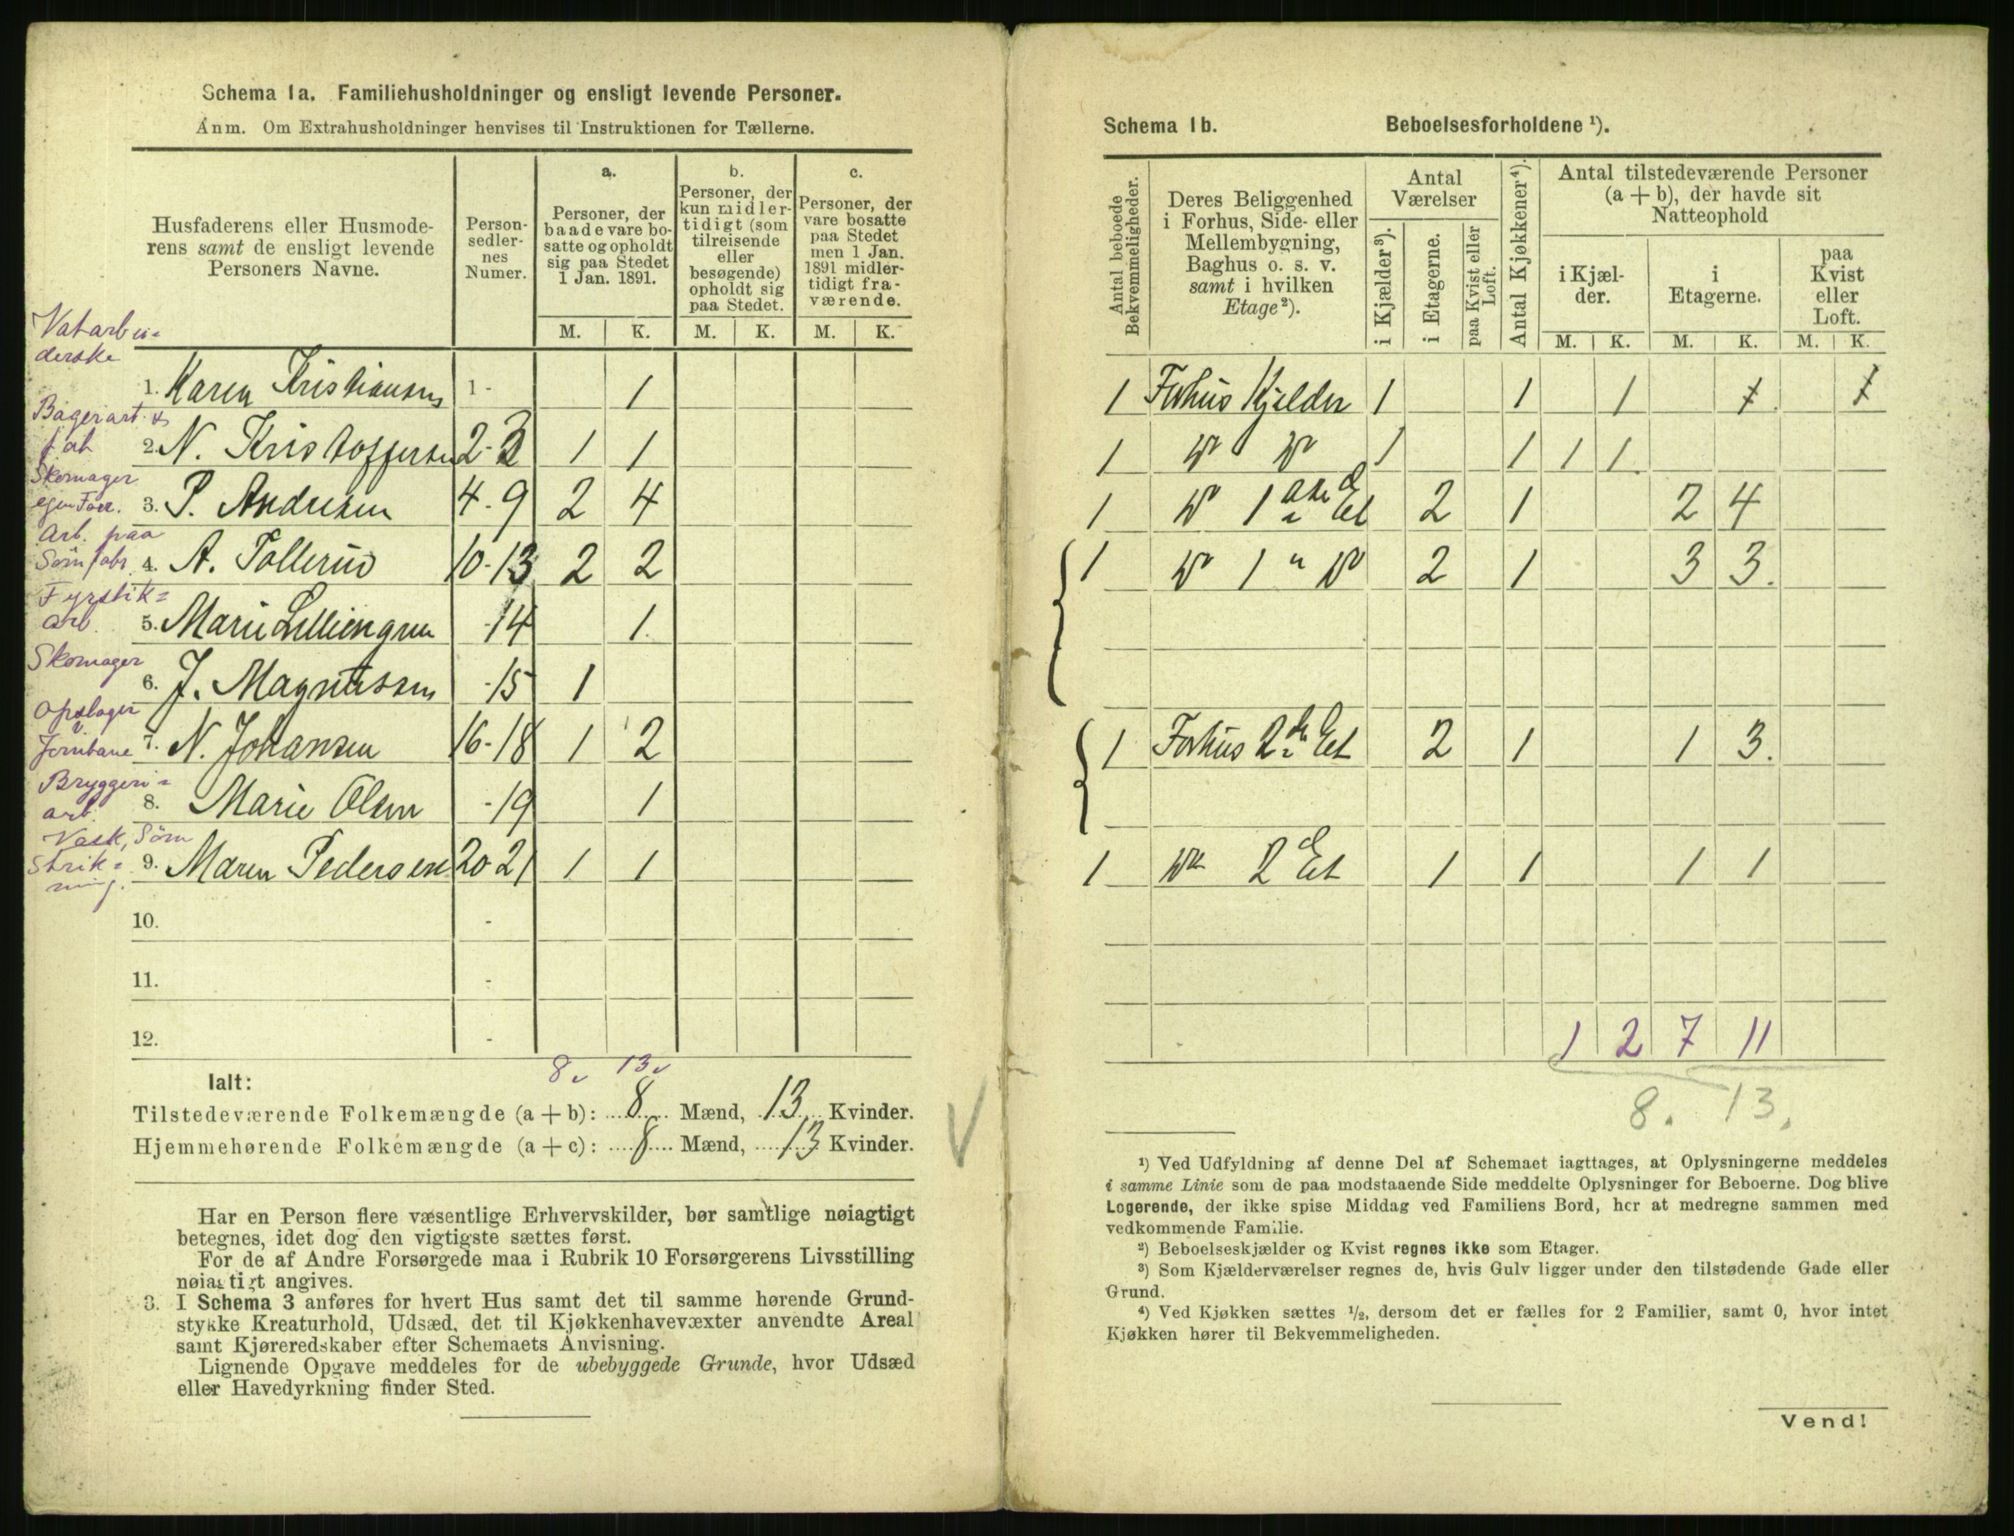 Schema 1a. Familiehusholdninger og ensligt levende Personer.
Anm. Om Extrahusholdninger henvises til Instruktionen for Tællerne.
Husfaderens eller Husmode-
rens samt de ensligt levende
Personers Navne.
Person-
sedler-
nes
Numer.
a.
Personer, der
baade vare bo-
satte og opholdt
sig paa Stedet
1 Jan. 1891.
b.
Personer, der
kun midler-
tidigt (som
tilreisende
eller
besøgende)
opholdt sig
paa Stedet.
c.
Personer, der
vare bosatte
paa Stedet
men 1 Jan.
1891 midler-
tidigt fra-
værende.
M. K. M. K. M. K.
1. Karen Kristiansen 1 - 1
Bagerart.
2. N. Kristoffersen 2-3 1 1
Skomager
egen Forr. 3. P. Andersen 4-9 2 4
Arb. paa
Sömfabr. 4. A. Tollerud 10-13 2 2
Fyrstik=
arb. 5. Marie Lilliengren -14 1
Skomager
6. J. Magnussen -15 1
Opslager
Jernbane 7. N. Johansen 16-18 1 2
Bryggeri=
arb. 8. Marie Olsen -19 1
Vask, Söm
Strik=
ning. 9. Maren Pedersen 20 21 1 1
10. -
11. -
12. -
8. 13.
Ialt:
Tilstedeværende Folkemængde (a + b): 8 Mænd, 13 Kvinder.
Hjemmehørende Folkemængde (a + c): 8 Mænd, 13 Kvinder.
Har en Person flere væsentlige Erhvervskilder, bør samtlige nøiagtigt
betegnes, idet dog den vigtigste sættes først.
For de af Andre Forsørgede maa i Rubrik 10 Forsørgerens Livsstilling
nøiagtigt angives.
3. I Schema 3 anføres for hvert Hus samt det til samme hørende Grund-
stykke Kreaturhold, Udsæd, det til Kjøkkenhavevæxter anvendte Areal
samt Kjøreredskaber efter Schemaets Anvisning.
Lignende Opgave meddeles for de ubebyggede Grunde, hvor Udsæd
eller Havedyrkning finder Sted.
Schema 1b. Beboelsesforholdene ¹).
Antal beboede
Bekvemmeligheder.
Deres Beliggenhed
i Forhus, Side- eller
Mellembygning,
Baghus o. s. v.
samt i hvilken
Etage²).
Antal
Værelser
i Kjælder³).
i Etagerne.
paa Kvist eller
Loft.
Antal Kjøkkener⁴).
Antal tilstedeværende Personer
(a + b), der havde sit
Natteophold
i Kjæl-
der.
i
Etagerne.
paa
Kvist
eller
Loft.
M. K. M. K. M. K.
1 Forhus Kjelder 1 1 1 1 1
1 Do Do 1 1 1 1
1 Do 1 Et 2 1 2 4
1 Do 1 " Do 2 1 3 3.
1 Forhus 2 Et 2 1 1 3.
1 Do 2 Et 1 1 1 1
1 2 7 11
8. 13.
¹) Ved Udfyldning af denne Del af Schemaet iagttages, at Oplysningerne meddeles
i samme Linie som de paa modstaaende Side meddelte Oplysninger for Beboerne. Dog blive
Logerende, der ikke spise Middag ved Familiens Bord, her at medregne sammen med
vedkommende Familie.
²) Beboelseskjælder og Kvist regnes ikke som Etager.
³) Som Kjælderværelser regnes de, hvis Gulv ligger under den tilstødende Gade eller
Grund.
⁴) Ved Kjøkken sættes ½, dersom det er fælles for 2 Familier, samt 0, hvor intet
Kjøkken hører til Bekvemmeligheden.
Vend!